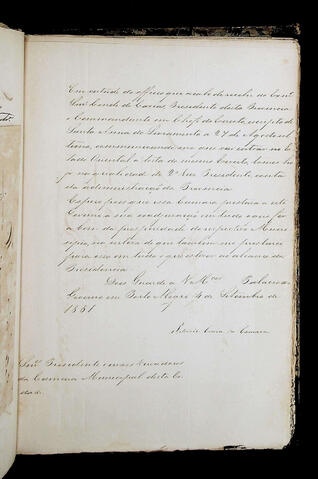 Em virtude do officio que acabo de receber do Exmº
Snr. Conde de Caxias, Presidente desta Provincia
e Commandante em Chefe do Exercito, escripto de
Santa Anna do Livramento a 27 de Agosto ul
timo, communicando-me que vai entrar no Es
tado Oriental a testa do mesmo Exercito, tomo ho
je na qualidade de 2º Vice Presidente conta
da administração da Provincia.
Espero pois que essa Camara prestará a este
Governo a sua coadjuvação em tudo o que for
a bem da prosperidade do respectivo Muni
cipio, na certeza de que tambem me prestarei
para isso em tudo o que estiver ao alcance da
Presidencia.
Deos Guarde a V. Mces Palacio do
Governo em Porto Alegre 4 de Setembro de
1851
Snrs. Presidente e mais Vereadores
da Camara Municipal desta Ci
dade.